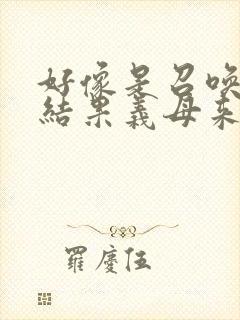 好像是召喚
結果義母來
羅慶伍